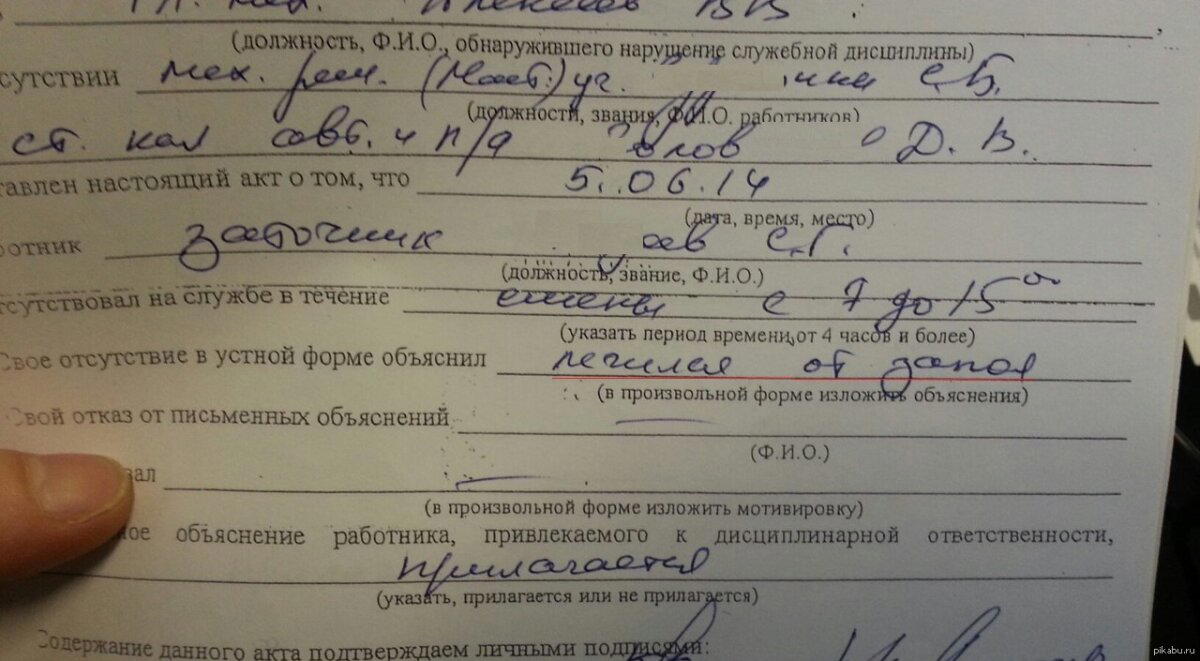 (должность, Ф.И.О., обнаружившего нарушение служебной дисциплины)
сутствии мех. (Маст.) уч. С.Б.
(должности, звания, Ф.И.О. работников)
ст. кал авт. и п/а Д. В.
тавлен настоящий акт о том, что 5.06.14
(дата, время, место)
ботник заточник ов С.Г.
(должность, звание, Ф.И.О.)
тсутствовал на службе в течение смены с 7 до 15 00
(указать период времени, от 4 часов и более)
Свое отсутствие в устной форме объяснил лечился от запоя
(в произвольной форме изложить объяснения)
Свой отказ от письменных объяснений
(Ф.И.О.)
вал
(в произвольной форме изложить мотивировку)
ное объяснение работника, привлекаемого к дисциплинарной ответственности,
прилагается
(указать, прилагается или не прилагается)
Содержание данного акта подтверждаем личными подписями:
pikabu.ru